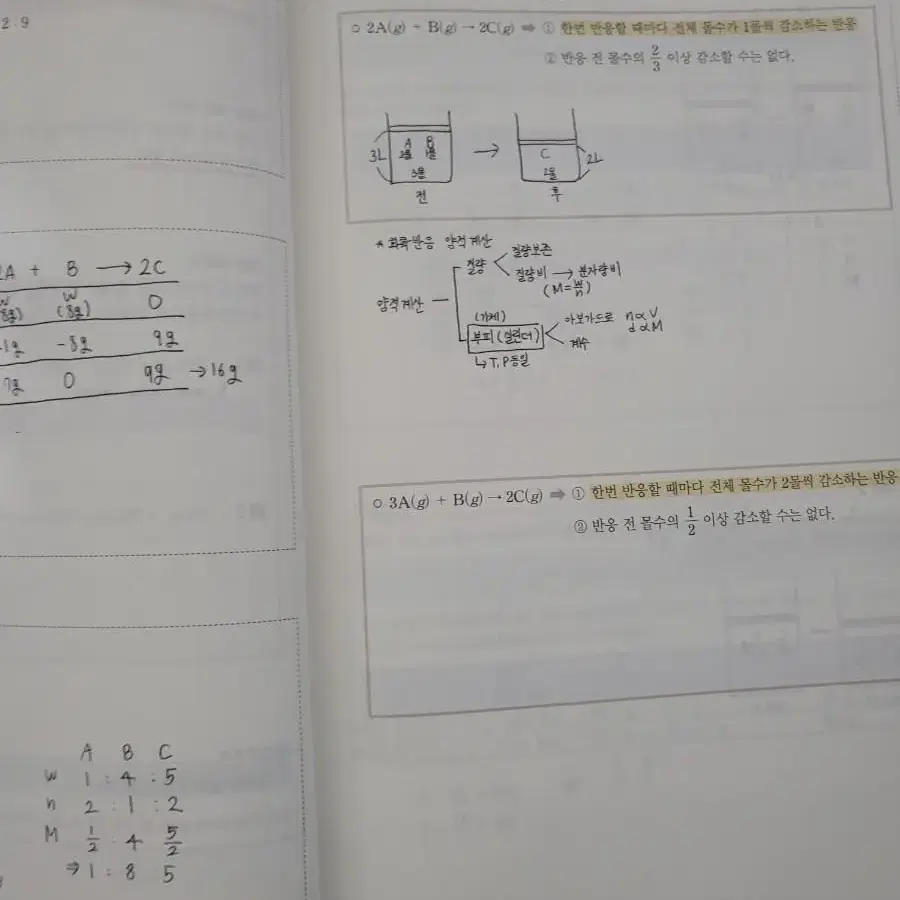 2:9
2A + B → 2C
w w 0
(8g) (8g)
-1g -8g 9g
7g 0 9g → 16g
A B C
w 1 : 4 : 5
n 2 : 1 : 2
M 1/2 : 4 5/2
⇒ 1 : 8 5
○ 2A(g) + B(g) → 2C(g) ⇒ ① 한번 반응할 때마다 전체 몰수가 1몰씩 감소하는 반응
② 반응 전 몰수의 2/3 이상 감소할 수는 없다.
A B
3L 2몰 1몰 → C 2L
3몰 2몰
전 후
* 화학반응 양적계산
질량 질량보존
질량비 → 분자량비
(M=w/n)
양적계산
(기체)
부피(실린더) 아보가드로 n∝V
d∝M
계수
↳ T,P동일
○ 3A(g) + B(g) → 2C(g) ⇒ ① 한번 반응할 때마다 전체 몰수가 2몰씩 감소하는 반응
② 반응 전 몰수의 1/2 이상 감소할 수는 없다.